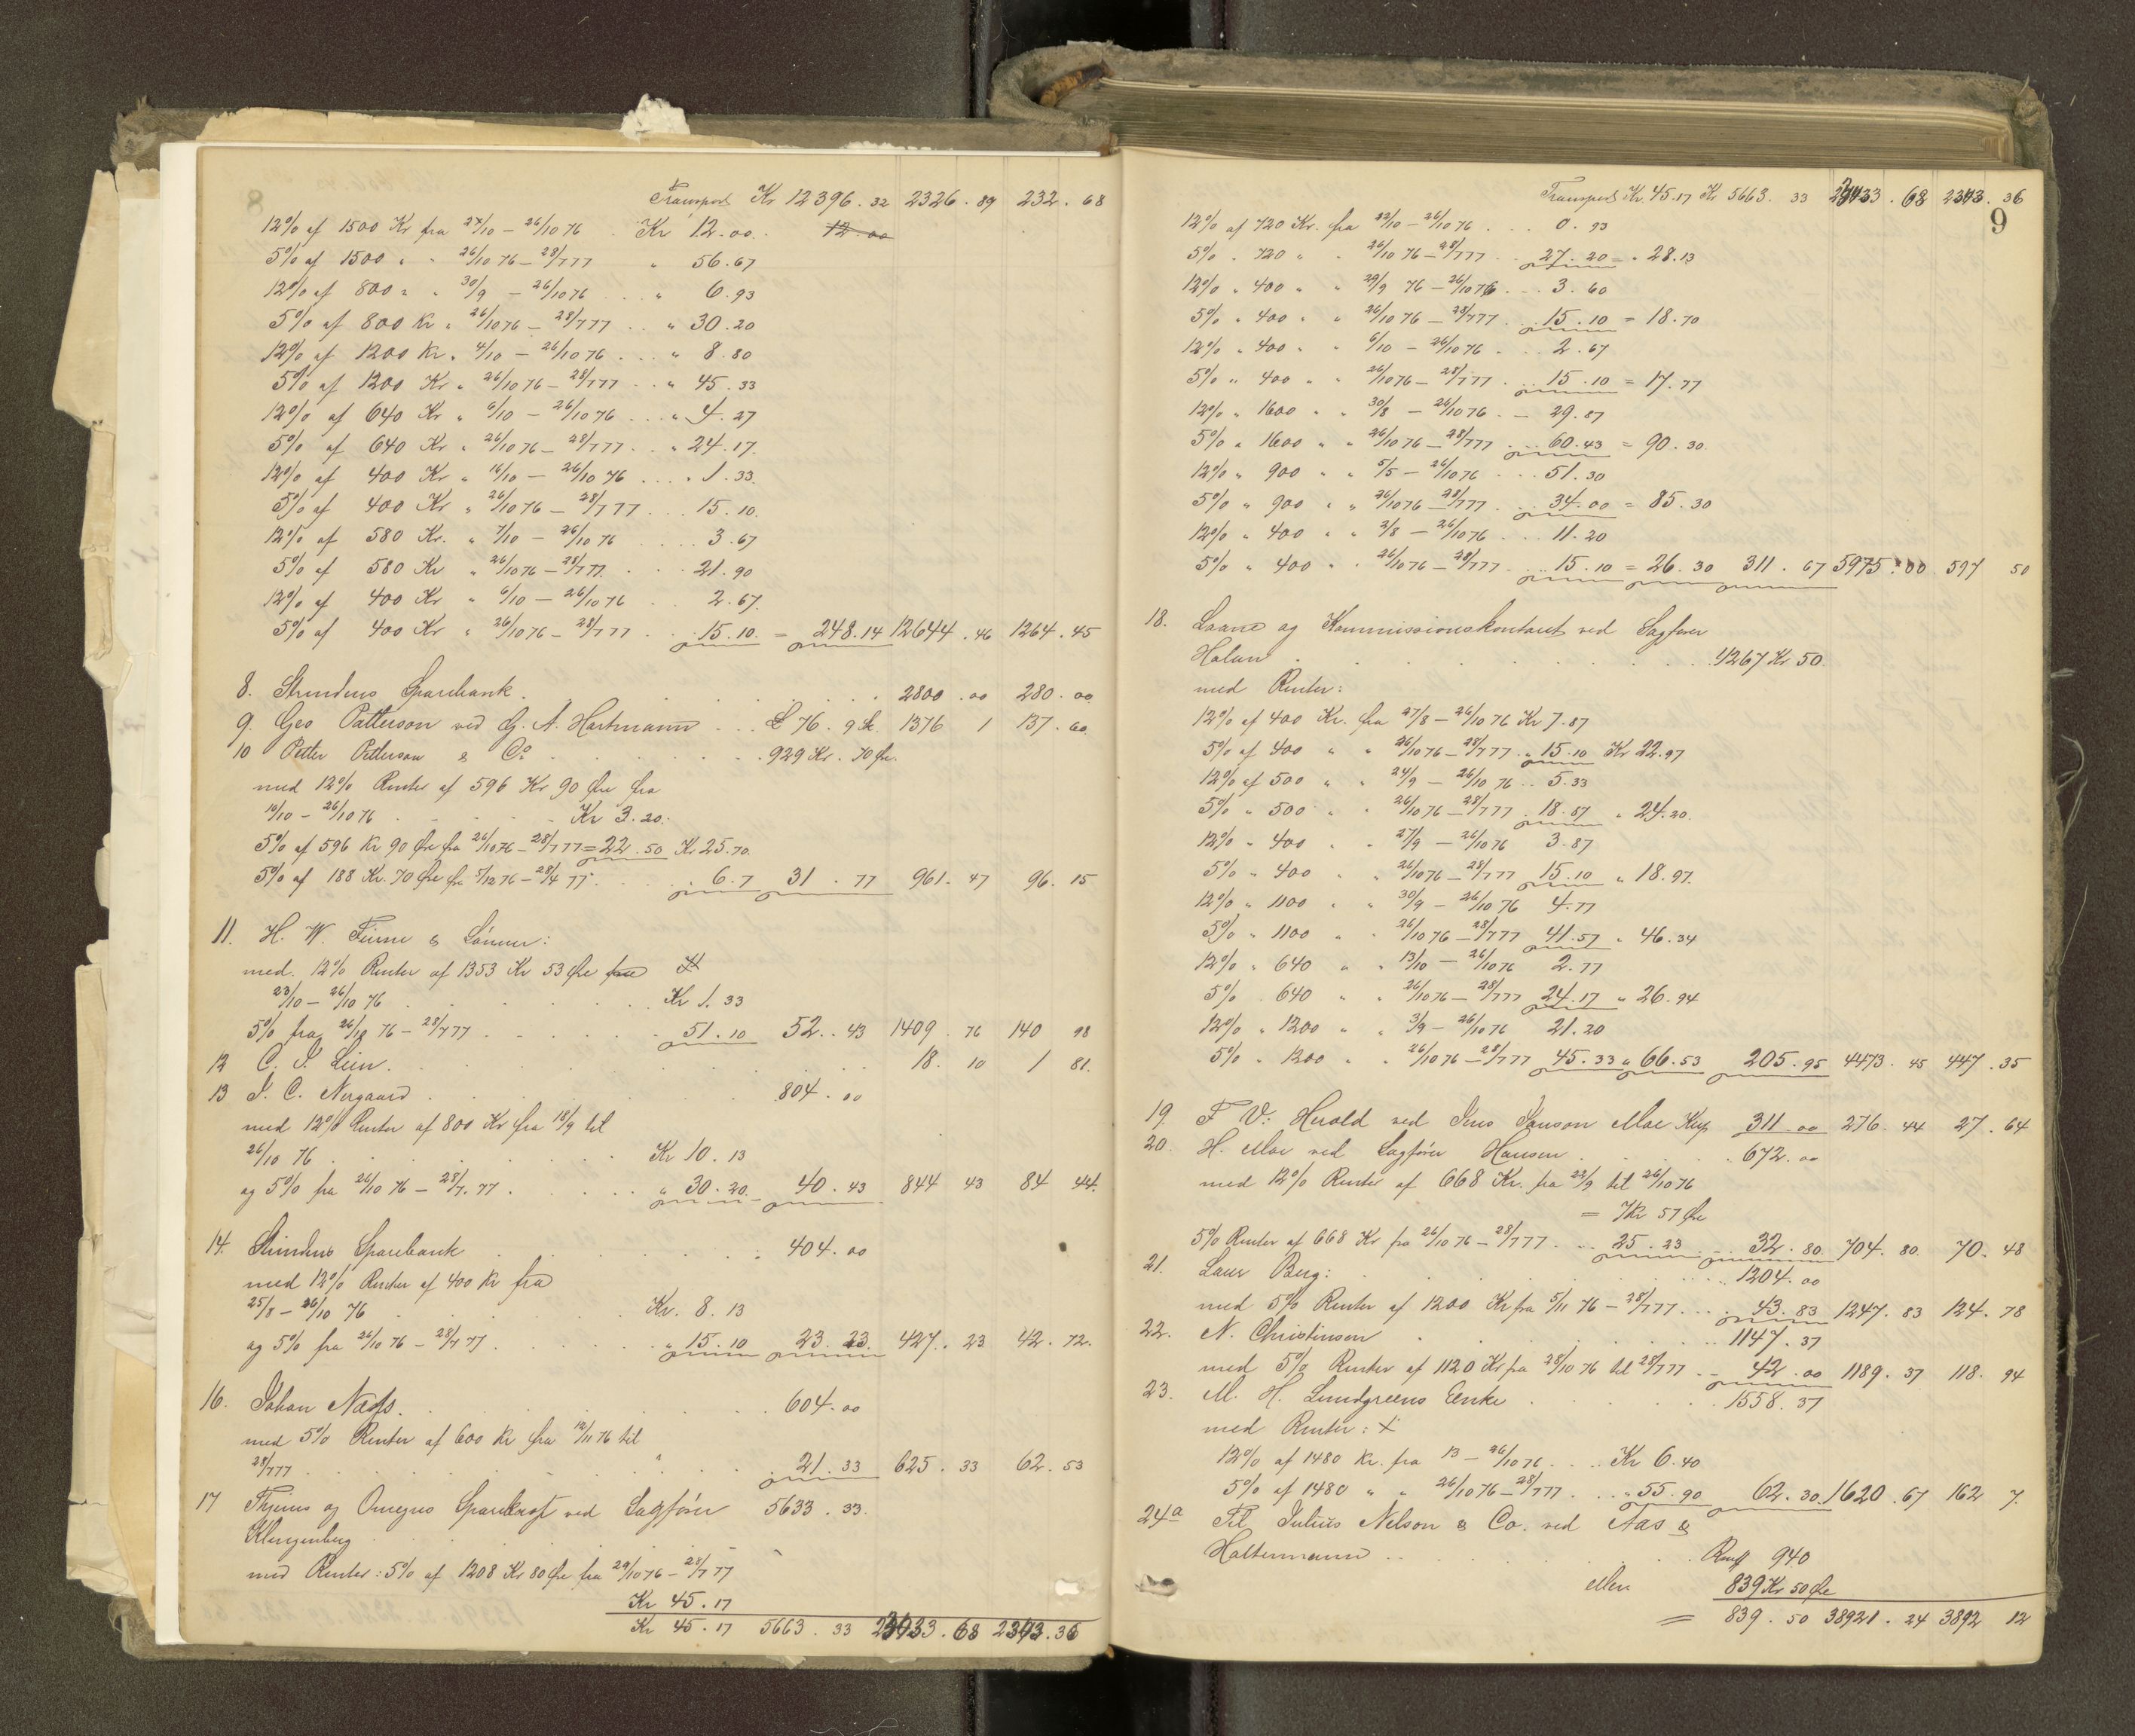 8
Transport Kr 12396.32 2326.89 232.68
12% af 1500 Kr fra 24/10 – 26/10 76 . Kr 12.00. 12.00
5% af 1500 " " 26/10 76 – 28/7 77 " 56.67
12% af 800 " " 30/9 – 26/10 76 . . . " 6.93
5% af 800 Kr " 26/10 76 – 28/7 77 . . " 30.20
12% af 1200 Kr. " 4/10 – 26/10 76 . . . " 8.80
5% af 1200 Kr " 26/10 76 – 28/7 77 . . " 45.33
12% af 640 Kr " 6/10 – 26/10 76 . . . " 4.27
5% af 640 Kr " 26/10 76 – 28/7 77 . . " 24.17.
12% af 400 Kr " 16/10 – 26/10 76 . . . " 1.33.
5% af 400 Kr " 26/10 76 – 28/7 77 . . . 15.10.
12% af 580 Kr. " 7/10 – 26/10 76 . . . . 3.67
5% af 580 Kr " 26/10 76 – 28/7 77. . . . 21.90
12% af 400 Kr " 6/10 – 26/10 76 . . 2.67.
5% af 400 Kr " 26/10 76 – 28/7 77 . . 15.10. = 248.14 12644.46 1264.45
8. Strindens Sparebank . . . . . . . 2800.00 280.00
9. Geo Patterson ved G. A. Hartmann . . . £ 76. 9 sh. 1376 1 137.60
10 Petter Petterson & Co . . . . . . 929 Kr. 70 Øre.
med 12% Renter af 596 Kr 90 Øre fra
10/10 – 26/10 76 . . . . . Kr 3.20.
5% af 596 Kr 90 Øre fra 26/10 76 – 28/7 77 = 22.50 Kr 25.70.
5% af 188 Kr. 70 Øre fra 5/12 76 – 28/7 77. . . . . 6.7 31.77 961.47 96.15
11. H. W. Finne & Sönner:
med. 12% Renter af 1353 Kr 53 Øre fra
23/10 – 26/10 76 . . . . . . . Kr 1.33
5% fra 26/10 76 – 28/7 77 . . . . . 51.10 52..43 1409.76 140 98
12 C. S. Lien. . . . . . . . . . 18. 10 1 81.
13 J. C. Nergaard . . . . . . . 804.00
med 12% Renter af 800 Kr fra 18/9 til
26/10 76 . . . . . . . Kr 10.13
og 5% fra 26/10 76 – 28/7. 77 . . . . . " 30.20. 40.43 844 43 84 44.
14. Strindens Sparebank . . . . . . 404.00
med 12% Renter af 400 Kr fra
25/8 – 26/10 76 . . . . . . Kr. 8.13
og 5% fra 26/10 76 – 28/7 77 . . . . . " 15.10 23.23. 427.23 42.72.
16. Johan Næss. . . . . . . . . 604.00
med 5% Renter af 600 Kr fra 12/11 76 til
28/7 77 . . . . . . . . 21.33 625.33 62.53
17 Thjems og Omegns ved Sagförer 5633.33.
Klingenberg . . . . . .
med Renter: 5% af 1208 Kr 80 Øre fra 29/10 76 – 28/7 77
Kr 45.17
Kr 45.17 5663.33 23433.68 2343.36
9
Transport Kr. 45.17 Kr 5663.33 23433.68 2343.36
12% af 720 Kr. fra 22/10 – 26/10 76 . . . 0.93
5% . 720 " . 26/10 76 – 28/7 77 . . 27.20 = . 28.13
12% " 400 " " 29/9 76 – 26/10 76 . . . 3.60
5% " 400 " " 26/10 76 – 28/7 77. . . 15.10 = 18.70
12% " 400 " " 6/10 – 26/10 76 . . . 2.67
5% " 400 " " 26/10 76 – 28/7 77 . . . 15.10 = 17.77
12% " 1600 " " 30/8 – 26/10 76 . – 29.87
5% " 1600 " " 26/10 76 – 28/7 77 . . . 60.43 = 90.30
12% " 900 " " 5/5 – 26/10 76 . . . 51.30
5% " 900 " " 26/10 76 – 28/7 77 . . . 34.00 = 85.30
12% " 400 " " 2/8 – 26/10 76 . . . 11.20
5% " 400 " . 26/10 76 – 28/7 77 . . . 15.10 = 26.30 311.67 5975.00 597 50
18. Laane og Kommissionskontoret ved Sagförer
Holum . . . . . . . . . 4267 Kr 50.
med Renter:
12% af 400 Kr. fra 27/8 – 26/10 76 Kr 7.87
5% af 400 " " 26/10 76 – 28/7 77 " 15.10 Kr 22.97
12% af 500 " " 24/9 – 26/10 76 . . 5.33
5% " 500 " " 26/10 76 – 28/7 77 . 18.87 " 24.20.
12% " 400 . " 27/9 – 26/10 76 3.87
5% " 400 " " 26/10 76 – 28/7 77 15.10 " 18.97.
12% " 1100 " " 30/9 – 26/10 76 4.77
5% " 1100 " " 26/10 76 – 28/7 77 41.57 " 46.34
12% " 640 " " 13/10 – 26/10 76 2.77
5% . 640 " " 26/10 76 – 28/7 77 24.17 " 26.94
12% " 1200 " " 3/9 – 26/10 76 21.20
5% " 1200 " " 26/10 76 – 28/7 77 45.33 " 66.53 205.95 4473.45 447.35
19. F V: Herold ved Jens Janson Moe Kup 311.00 276.44 27.64
20. H. Moe ved Sagförer Hansen . . . . . 672.00
med 12% Renter af 668 Kr. fra 22/9 til 26/10 76
= 7 Kr 57 Øre
5% Renter af 668 Kr fra 26/10 76 – 28/7 77 . . . 25.23 . . 32.80. 704.80. 70.48
21. Laur Berg: . . . . . . . . 1204.00
med 5% Renter af 1200 Kr fra 5/11 76 – 28/7 77 . . . . 43.83 1247.83 124.78
22. N. Christinson . . . . . . 1147.37
med 5% Renter af 1120 Kr fra 28/10 76 til 28/7 77 . – 42.00 1189.37 118.94
23. M. H. Lundgreens Enke . . . . . . 1558.37
med Renter: ×
12% af 1480 Kr. fra 13 – 26/10 76 . . . Kr 6.40
5% af 1480 " " 26/10 76 – 28/7 77 . . " 55.90 62.30. 1620.67 162 7.
24a Til Julius Nelson & Co. ved Aas &
Haltermann . . . . . . . Rmk 940
ellers 839 Kr 50 Øre
= 839.50 38921.24 3892 12